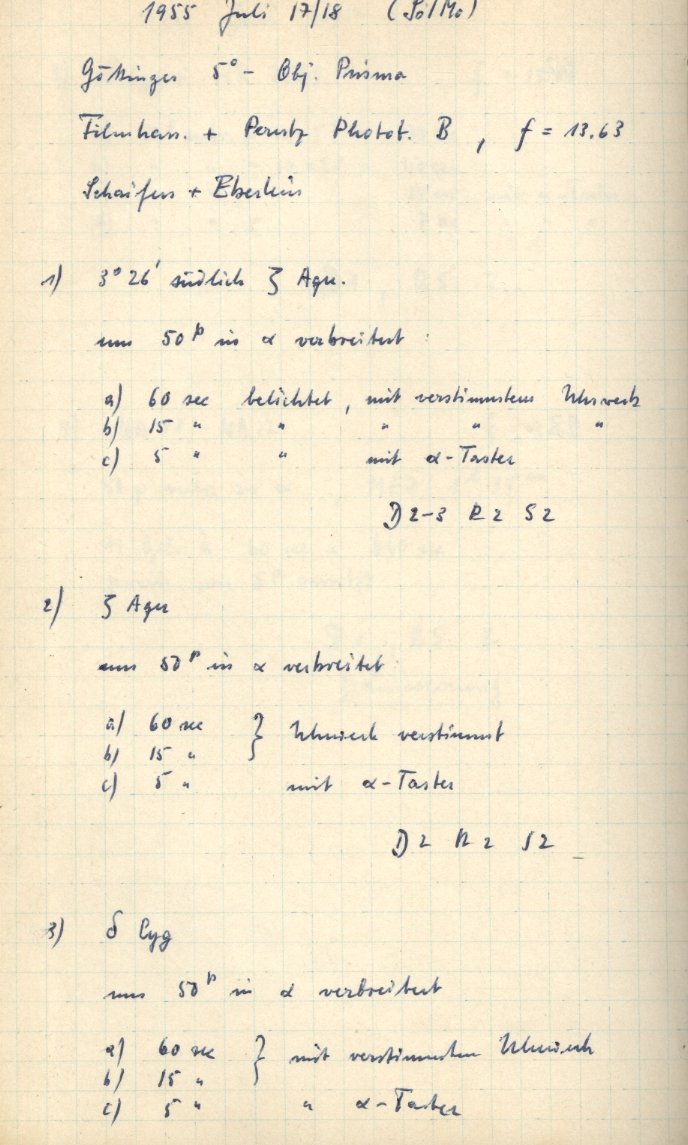 1955 Juli 17/18 (So/Mo)
Göttinger 5° - Obj. Prisma
Filmkass. + Perutz Photot. B , f = 13.63
Schaifers + Eberlein
1) 3° 26' südlich ζ Aqu.
um 50 p in α verbreitert :
a) 60 sec belichtet, mit verstimmtem Uhrwerk
b) 15 " " " " "
c) 5 " " mit α-Taster
D 2-3 R 2 S 2
2) ζ Aqu
um 50 p in α verbreitet
a) 60 sec } Uhrwerk verstimmt
b) 15 "
c) 5 " mit α-Taster
D 2 R 2 S 2
3) δ Cyg
um 50 p in α verbreitert
a) 60 sec } mit verstimmten Uhrwerk
b) 15 "
c) 5 " " α-Taster